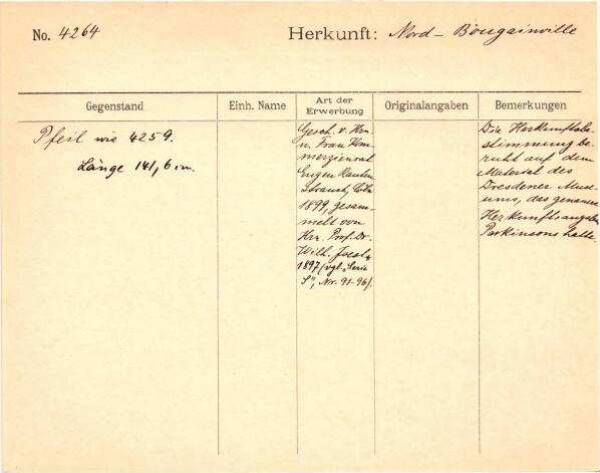 No. 4264
Herkunft: Nord-Bougainville
Gegenstand
Einh. Name
Art der Erwerbung
Originalangaben
Bemerkungen
Pfeil wie 4259.
Länge 141,6 cm.
Gesch. v. Hrn
u. Frau Kom-
merzienrat
Eugen Rauten
strauch, Cöln
1899, gesam-
melt von
Hrn. Prof. Dr.
Wilh. Joest
1897 (vgl. „Serie
S", Nr. 91-96).
Die Herkunftsbe-
stimmung be-
ruht auf dem
Material des
Dresdener Muse-
ums, das genauere
Herkunftsangaben
Parkinsons hatte.